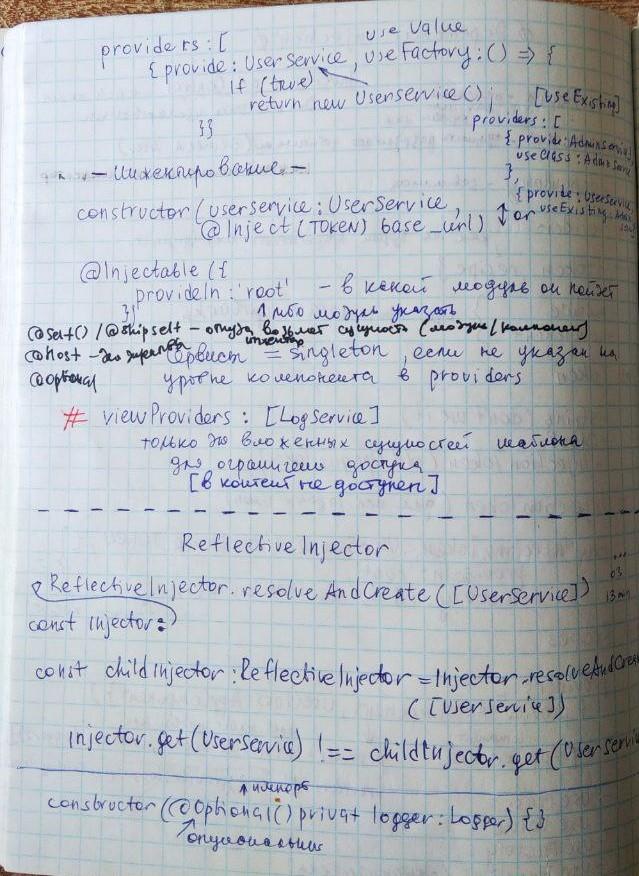 use Value
providers: [
{ provide: UserService, useFactory: () => {
if (true)
return new UserService();
}}
[useExisting]
providers: [
{ provide: AdminService
useClass: Admin
},
{ provide: UserService
or useExisting:
– Инжектирование –
constructor (userservice: UserService,
@Inject (TOKEN) base_url)
@Injectable ({
provideIn: 'root' – в какой модуль он пойдет
}) либо модуль указать
@Self() / @skipself – откуда возьмет сущность (модуль/компонент)
@Host –
инжектор
Сервисы = singleton, если не указан на
@Optional уровне компонента в providers
# viewProviders: [LogService]
только для вложенных сущностей шаблона
для ограничения доступа
[в контент не доступен]
ReflectiveInjector
ReflectiveInjector.resolveAndCreate ([UserService])
...
03
13 мин
const Injector =
const childInjector: ReflectiveInjector = Injector.resolveAndCrea
([UserService])
Injector.get(UserService) !== childInjector.get(UserServi
импорт
constructor (@Optional() privat logger: Logger) {}
опциональния